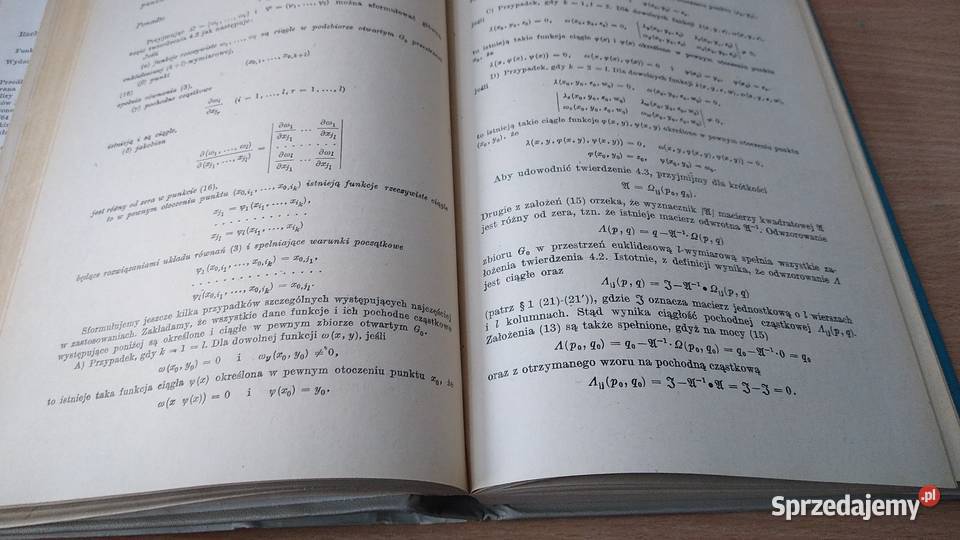 Ponadto
Przyjmując Ω = (ω₁, ..., ωₗ), ψ = (ψ₁, ..., ψₗ) można sformułować
część twierdzenia 4.2 jak następuje:
Jeśli
(α) funkcje rzeczywiste ω₁, ..., ωₗ są ciągłe w podzbiorze otwartym G₀ przestrzeni
euklidesowej (k+l)-wymiarowej,
(β) punkt
(16) (x₀,₁, ..., x₀,ₖ₊ₗ)
spełnia równania (3),
(γ) pochodne cząstkowe
∂ωᵢ/∂xⱼᵣ (i = 1, ..., l, r = 1, ..., l)
istnieją i są ciągłe,
(δ) jakobian
∂(ω₁, ..., ωₗ)/∂(xⱼ₁, ..., xⱼₗ) = | ∂ω₁/∂xⱼ₁ ... ∂ω₁/∂xⱼₗ |
. . . . . . . . .
| ∂ωₗ/∂xⱼ₁ ... ∂ωₗ/∂xⱼₗ |
jest różny od zera w punkcie (16),
to w pewnym otoczeniu punktu (x₀,ᵢ₁, ..., x₀,ᵢₖ) istnieją funkcje rzeczywiste ciągłe
xⱼ₁ = ψ₁(xᵢ₁, ..., xᵢₖ),
. . . . . . . . .
xⱼₗ = ψₗ(xᵢ₁, ..., xᵢₖ)
będące rozwiązaniami układu równań (3) i spełniające warunki początkowe
ψ₁(x₀,ᵢ₁, ..., x₀,ᵢₖ) = x₀,ⱼ₁,
. . . . . . . . . . . .
ψₗ(x₀,ᵢ₁, ..., x₀,ᵢₖ) = x₀,ⱼₗ.
Sformułujemy jeszcze kilka przypadków szczególnych występujących najczęściej
w zastosowaniach. Zakładamy, że wszystkie dane funkcje i ich pochodne cząstkowe
występujące poniżej są określone i ciągłe w pewnym zbiorze otwartym G₀.
A) Przypadek, gdy k = 1 = l. Dla dowolnej funkcji ω(x, y), jeśli
ω(x₀, y₀) = 0 i ω_y(x₀, y₀) ≠ 0,
to istnieje taka funkcja ciągła ψ(x) określona w pewnym otoczeniu punktu x₀, że
ω(x ψ(x)) = 0 i ψ(x₀) = y₀.
C) Przypadek, gdy k = 1, l = 2. Dla dowolnych funkcji
jeśli
to istnieją takie funkcje ciągłe φ(x) i ψ(x) określone w pewnym otoczeniu punktu
x₀, że
λ(x, φ(x), ψ(x)) = 0, ω(x, φ(x), ψ(x)) = 0 i φ(x₀) = y₀, ψ(x₀) = z₀.
D) Przypadek, gdy k = 2 = l. Dla dowolnych funkcji λ(x, y, z, w), ω(x, y, z, w),
jeśli
λ(x₀, y₀, z₀, w₀) = 0, ω(x₀, y₀, z₀, w₀) = 0,
| λ_z(x₀, y₀, z₀, w₀) λ_w(x₀, y₀, z₀, w₀) |
| ω_z(x₀, y₀, z₀, w₀) ω_w(x₀, y₀, z₀, w₀) | ≠ 0,
to istnieją takie ciągłe funkcje φ(x, y), ψ(x, y) określone w pewnym otoczeniu punktu
(x₀, y₀), że
λ(x, y, φ(x, y), ψ(x, y)) = 0, ω(x, y, φ(x, y), ψ(x, y)) = 0,
φ(x₀, y₀) = z₀, ψ(x₀, y₀) = w₀.
Aby udowodnić twierdzenie 4.3, przyjmijmy dla krótkości
𝔄 = Ω_{ij}(p₀, q₀).
Drugie z założeń (15) orzeka, że wyznacznik |𝔄| macierzy kwadratowej 𝔄
jest różny od zera, tzn. że istnieje macierz odwrotna 𝔄⁻¹. Odwzorowanie
Λ(p, q) = q − 𝔄⁻¹·Ω(p, q)
zbioru G₀ w przestrzeń euklidesową l-wymiarową spełnia wszystkie za-
łożenia twierdzenia 4.2. Istotnie, z definicji wynika, że odwzorowanie Λ
jest ciągłe oraz
Λ_{ij}(p, q) = ℑ − 𝔄⁻¹•Ω_{ij}(p, q)
(patrz § 1 (21)-(21')), gdzie ℑ oznacza macierz jednostkową o l wierszach
i l kolumnach. Stąd wynika ciągłość pochodnej cząstkowej Λ_{ij}(p, q).
Założenia (13) są także spełnione, gdyż na mocy (15)
Λ(p₀, q₀) = q₀ − 𝔄⁻¹·Ω(p₀, q₀) = q₀ − 𝔄⁻¹·0 = q₀
oraz z otrzymanego wzoru na pochodną cząstkową
Λ_{ij}(p₀, q₀) = ℑ − 𝔄⁻¹•𝔄 = ℑ − ℑ = 0.
Sprzedajemy.pl